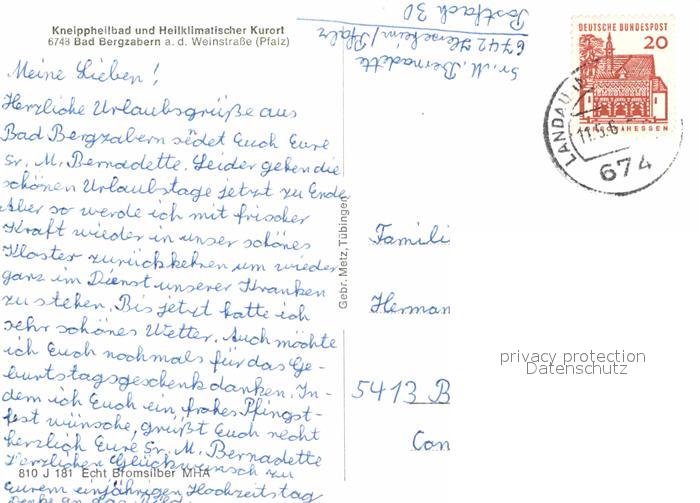 Kneippheilbad und Heilklimatischer Kurort
6748 Bad Bergzabern a. d. Weinstraße (Pfalz)
Meine Lieben!
Herzliche Urlaubsgrüße aus
Bad Bergzabern sedet Euch Eure
Sr. M. Bernadette. Leider gehen die
schönen Urlaubstage jetzt zu Ende
Aber so werde ich mit frischer
Kraft wieder in unser schönes
Kloster zurückkehren um wieder
ganz im Dienst unserer Kranken
zu stehen. Bis jetzt hatte ich
sehr schönes Wetter. Auch möchte
ich Euch nochmals für das Ge-
burtstagsgeschenk danken. In-
dem ich Euch ein frohes Pfingst-
fest wünsche, grüßt Euch recht
herzlich Eure Sr. M. Bernadette
Herzlichen Glückwunsch zu
810 J 181 Echt Bromsilber MHA
Eurem einjährigen Hochzeitstag
Gebr. Metz, Tübingen
Sr. M. Bernadette
6742 Herxheim/Pfalz
Postfach 30
DEUTSCHE BUNDESPOST
20
LANDAU
11.5.6
674
Famili
Herman
5413 B
Con
privacy protection
Datenschutz